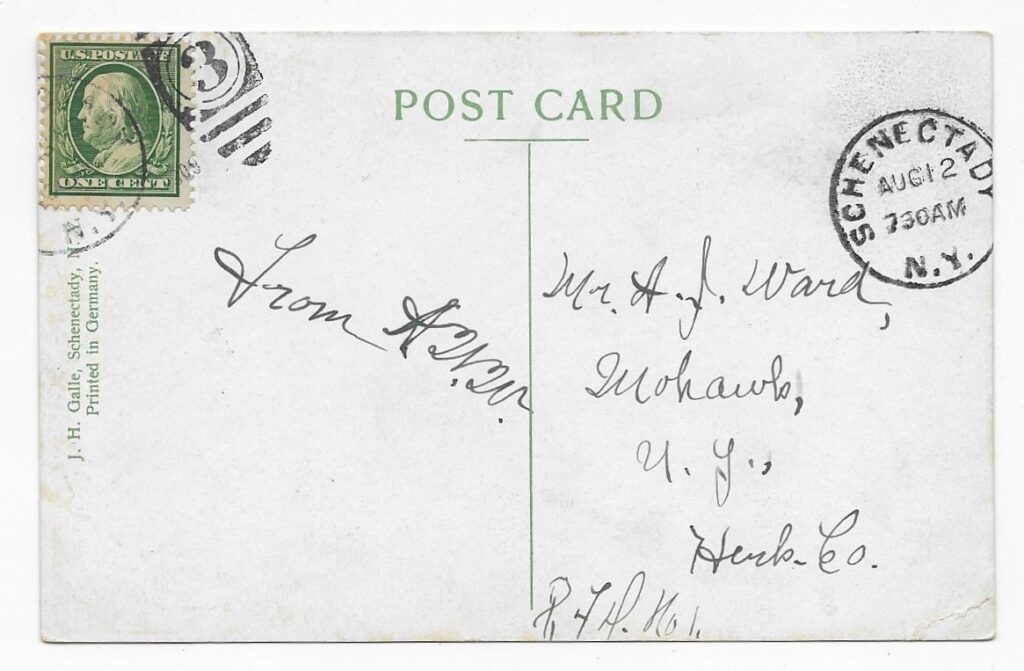 U.S. POSTAGE
ONE CENT
3
POST CARD
SCHENECTADY
AUG 12
730AM
N.Y.
From
Mr. A. J. Ward,
Mohawk,
N. Y.,
Herk. Co.
R. F. D. No. 1.
J. H. Galle, Schenectady, N.Y.
Printed in Germany.